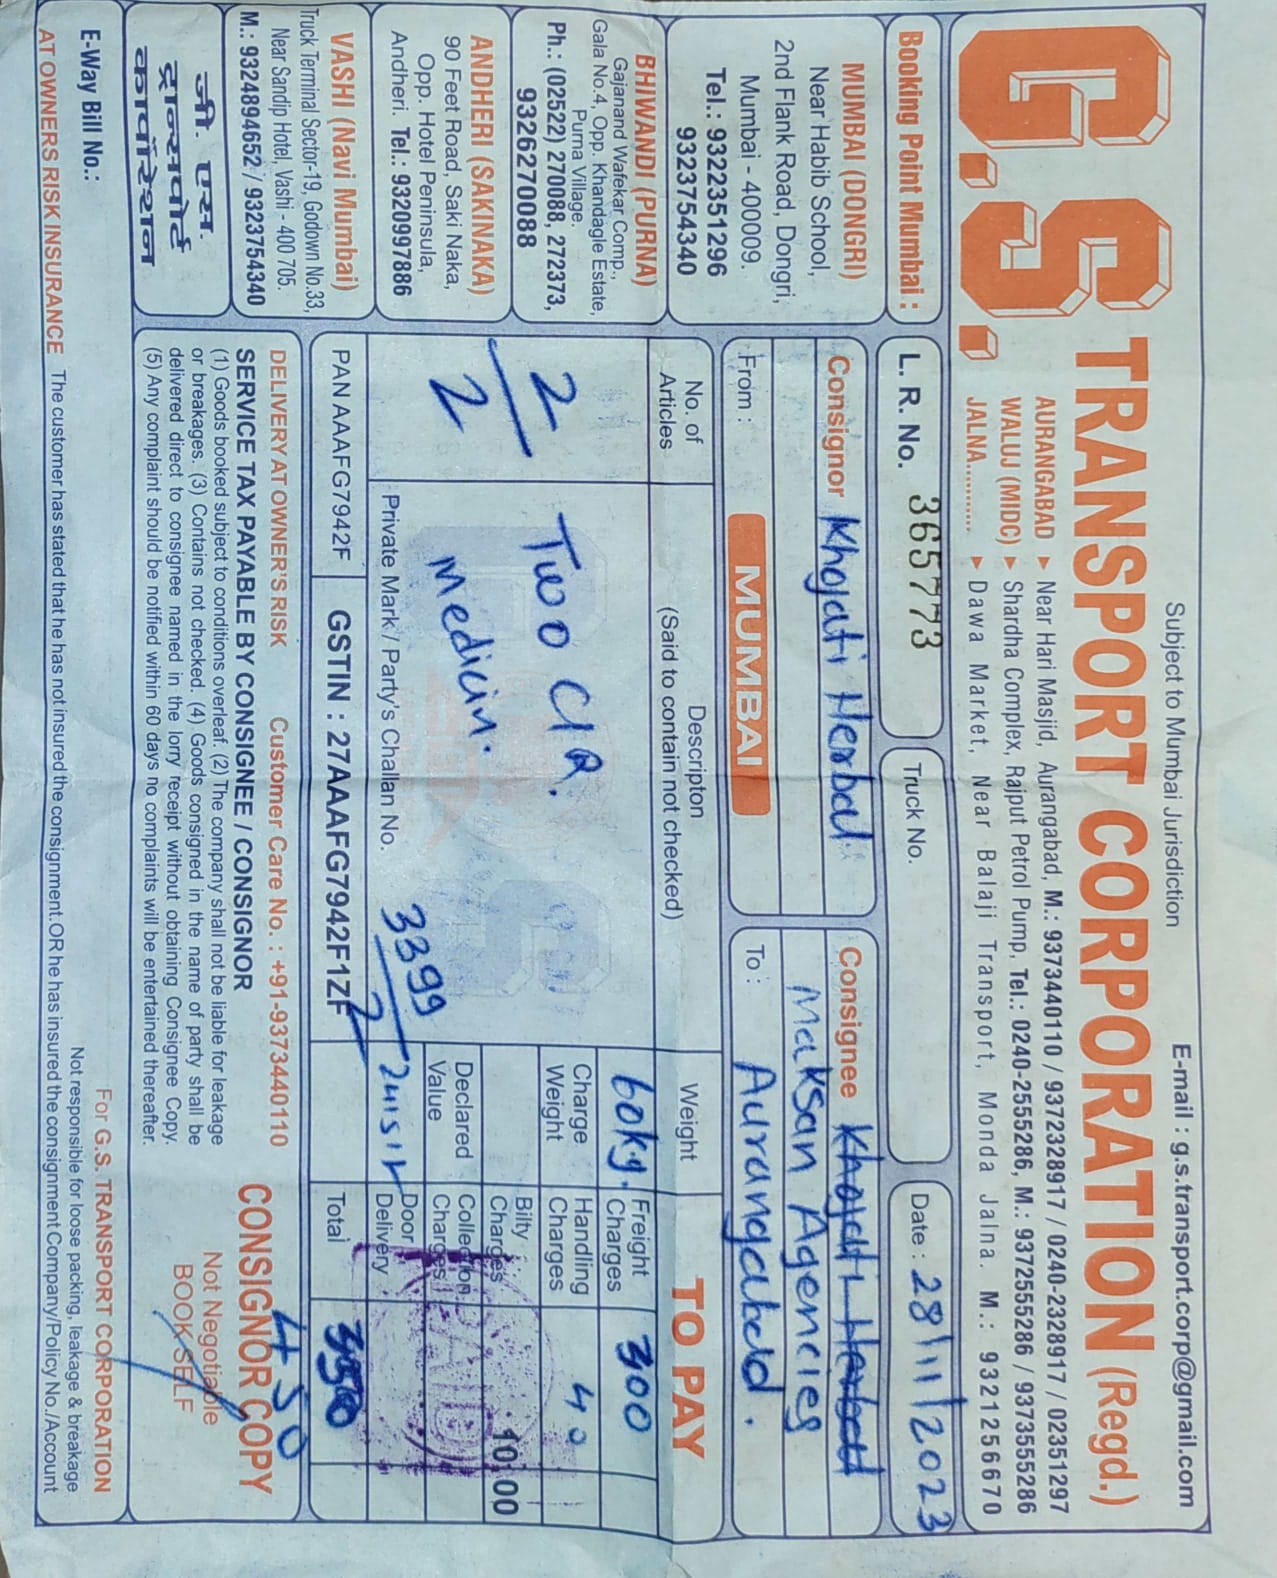 Subject to Mumbai Jurisdiction
E-mail : g.s.transport.corp@gmail.com
G.S. TRANSPORT CORPORATION (Regd.)
AURANGABAD ▸ Near Hari Masjid, Aurangabad, M.: 9373440110 / 9372328917 / 0240-2328917 / 02351297
WALUJ (MIDC) ▸ Shardha Complex, Rajput Petrol Pump, Tel.: 0240-2555286, M.: 9372555286 / 9373555286
JALNA........... ▸ Dawa Market, Near Balaji Transport, Monda Jalna. M.: 9321256670
Booking Point Mumbai :
L. R. No. 365773
Truck No.
Date : 28/11/2023
MUMBAI (DONGRI)
Near Habib School,
2nd Flank Road, Dongri,
Mumbai - 400009.
Tel.: 9322351296
9323754340
BHIWANDI (PURNA)
Gajanand Wafekar Comp.,
Gala No.4, Opp. Khandagle Estate,
Purna Village.
Ph.: (02522) 270088, 272373,
9326270088
ANDHERI (SAKINAKA)
90 Feet Road, Saki Naka,
Opp. Hotel Peninsula,
Andheri. Tel.: 9320997886
VASHI (Navi Mumbai)
Truck Terminal Sector-19, Godown No.33,
Near Sandip Hotel, Vashi - 400 705.
M.: 9324894652 / 9323754340
जी. एस.
ट्रान्सपोर्ट
कार्पोरेशन
Consignor Khojati Herbal
From : MUMBAI
Consignee Khojati Herbal
Maksan Agencies
To : Aurangabad.
No. of
Articles
Descripton
(Said to contain not checked)
Weight
TO PAY
2
2
Two
Medicin.
60kg.
Charge
Weight
Declared
Value
Freight
Charges 300
Handling
Charges 40
Bilty
Charges 10 00
Collection
Charges
Door
Delivery
Total
PAID
450
Private Mark / Party's Challan No. 3399
PAN AAAFG7942F
GSTIN : 27AAAFG7942F1ZF
DELIVERY AT OWNER'S RISK Customer Care No. : +91-9373440110
SERVICE TAX PAYABLE BY CONSIGNEE / CONSIGNOR
(1) Goods booked subject to conditions overleaf. (2) The company shall not be liable for leakage
or breakages. (3) Contains not checked. (4) Goods consigned in the name of party shall be
delivered direct to consignee named in the lorry receipt without obtaining Consignee Copy.
(5) Any complaint should be notified within 60 days no complaints will be entertained thereafter.
CONSIGNOR COPY
Not Negotiable
BOOK SELF
For G.S. TRANSPORT CORPORATION
E-Way Bill No.:
Not responsible for loose packing, leakage & breakage
AT OWNERS RISK INSURANCE The customer has stated that he has not insured the consignment. OR he has insured the consignment Company/Policy No./Account